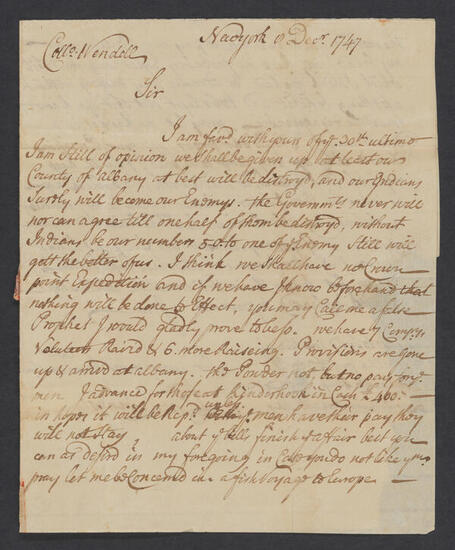 Newyork 8 Decr. 1747
Collo. Wendell
Sir
I am favd. with yours of ye. 30th ultimo
I am still of opinion we shall be given up at least our
County of albany at best will be distroyd, and our Indians
Surely will become our Enemys. the Governmts never will
nor can agree till one half of them be distroyd, without
Indians be our numbers 50 to one of ye Enemy Still will
gett the better of us. I think we shall have no Crown
point Expedition and if we have I know beforehand that
nothing will be done to Effect, you may Call me a false
Prophet I would gladly prove to be so. we have 7 Compys
Raisd & 6. more Raiseing. Provisions are gone
up & arrivd at albany. the Powder not but no pay for ye
men I advance for those at Kinderhook in Cash £400:
in hopes it will be Rep. unless ye men have their pay they
will not Stay, about ye bills finish ye affair best you
can as desird in my foregoing in Case you do not like ym
pray let me be Concernd in a fish Voyage to Europe